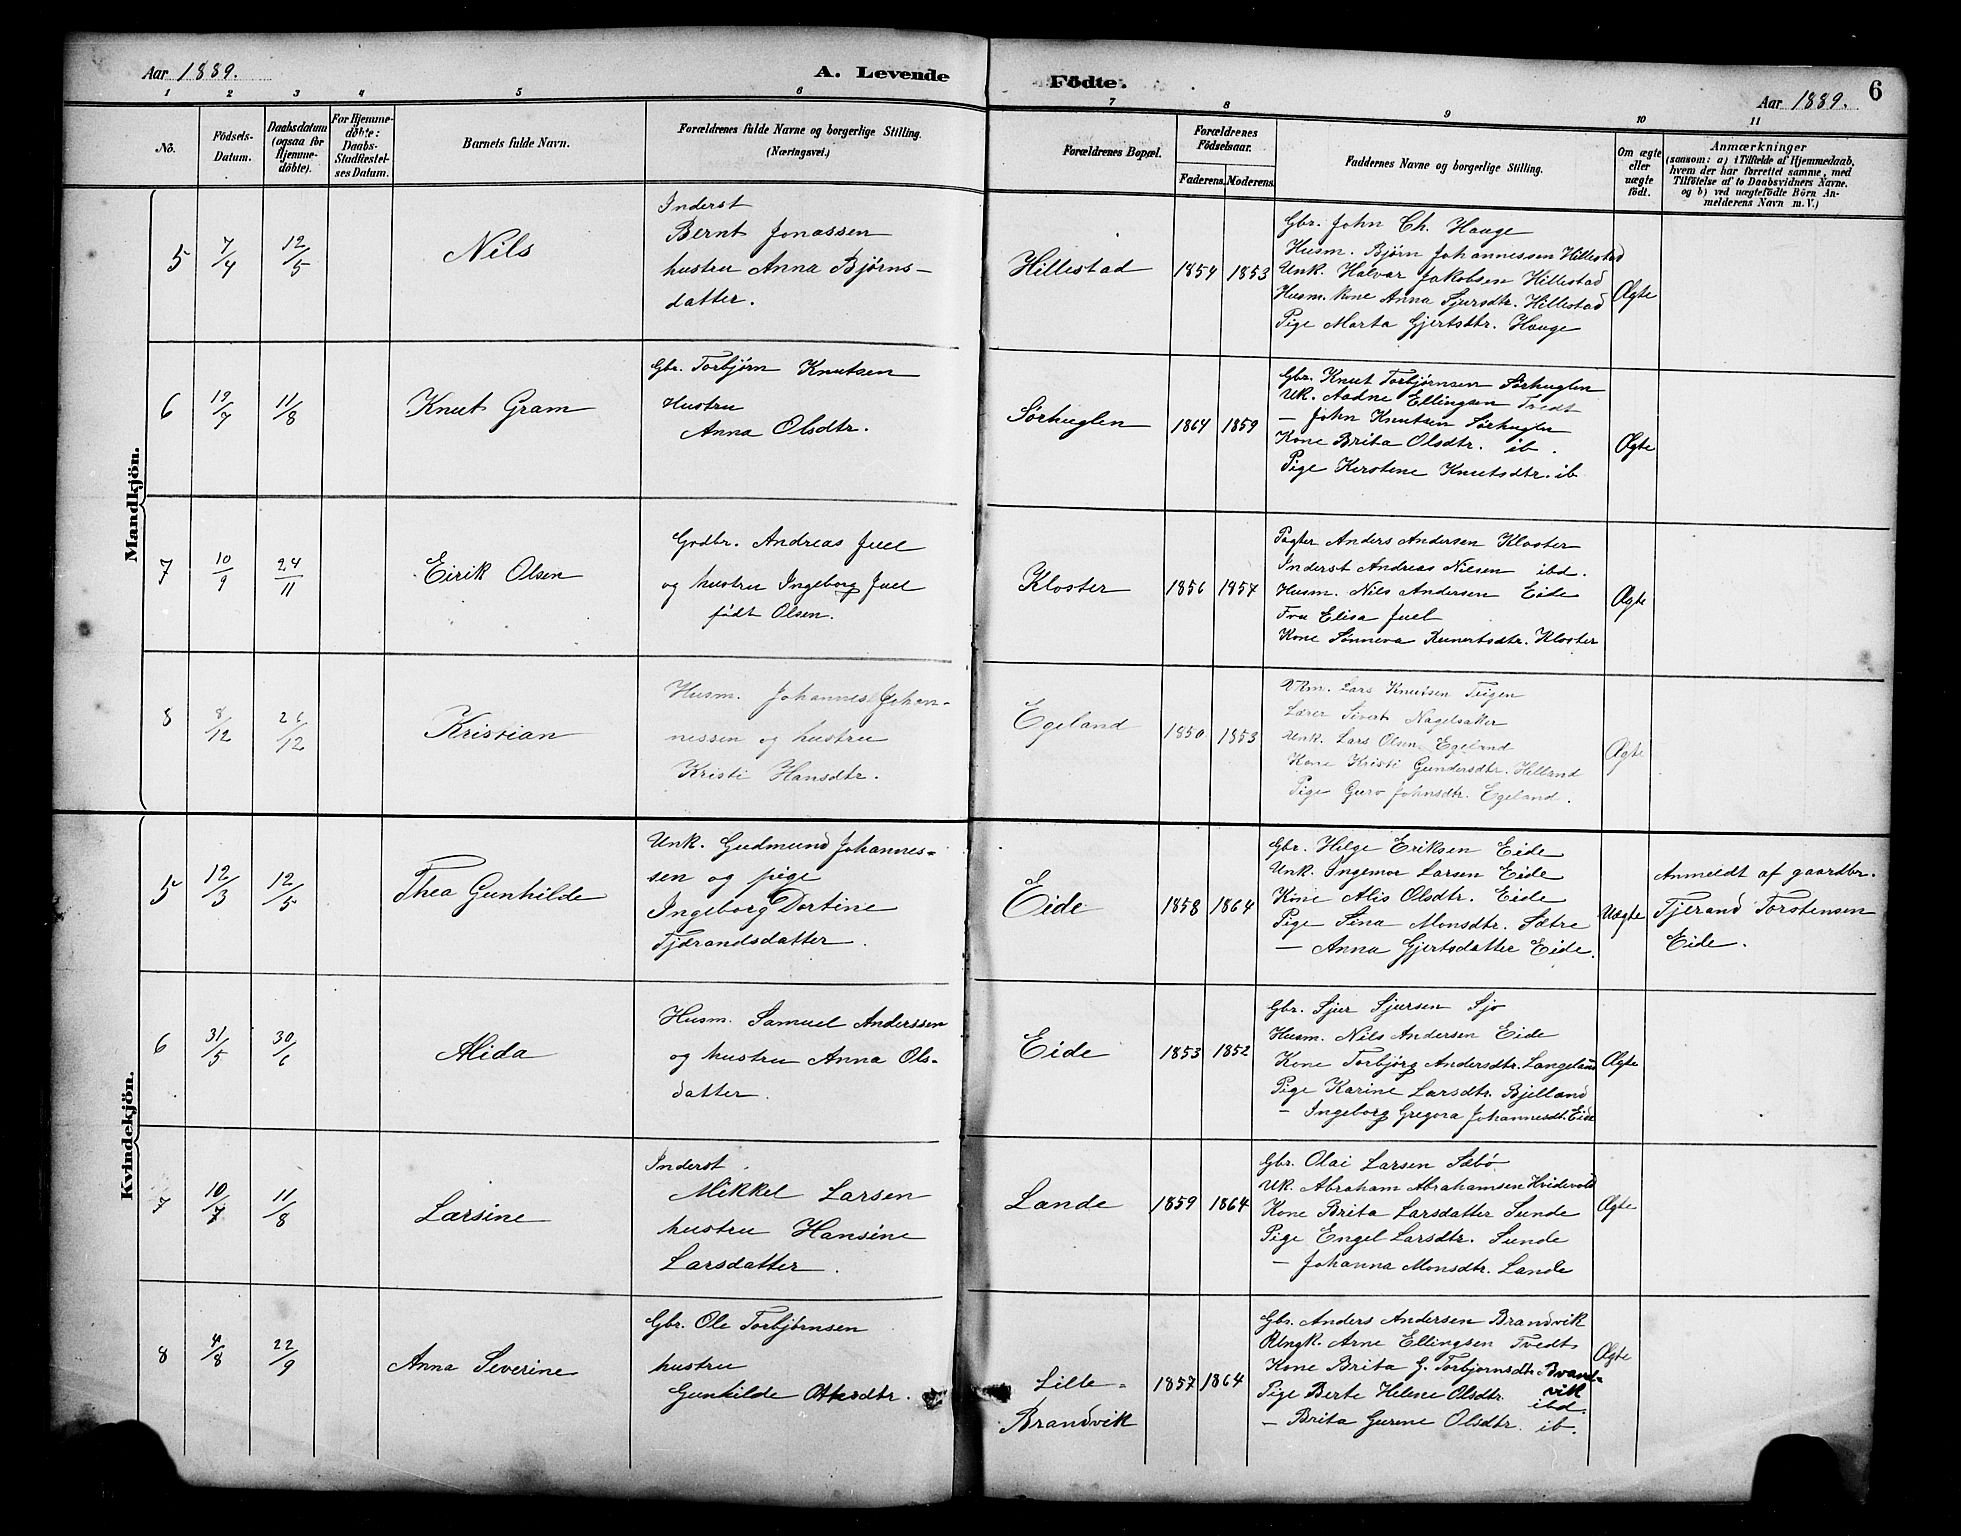 Aar 1889.
A. Levende
Födte.
6
Aar 1889.
1 2 3 4 5 6 7 8 9 10 11
No.
Födsels-
Datum.
Daabsdatum
(ogsaa for
Hjemme-
döbte).
For Hjemme-
döbte:
Daabs-
Stadfæstel-
ses Datum.
Barnets fulde Navn.
Forældrenes fulde Navne og borgerlige Stilling.
(Næringsvei.)
Forældrenes Bopæl.
Forældrenes
Födselsaar.
Faderens. Moderens.
Faddernes Navne og borgerlige Stilling.
Om ægte
eller
uægte
födt.
Anmærkninger
(saasom: a) i Tilfælde af Hjemmedaab,
hvem der har forrettet samme, med
Tilföielse af to Daabsvidners Navne.
og b) ved uægtefödte Börn An-
melderens Navn m. V.)
Mandkjön.
5 7/4 12/5 Nils
Inderst
Bernt Jonassen
hustru Anna Bjørns-
datter.
Hillestad 1854 1853
Gbr. John Ch. Hauge
Husm. Bjørn Johannessen Hillestad
Unk. Halvar Jakobsen Hillestad
Husm. kone Anna Sjursdtr. Hillestad
Pige Marta Gjertsdtr. Hauge
Ægte
6 19/7 11/8 Knut Gram
Gbr. Torbjørn Knutsen
Hustru
Anna Olsdtr.
Sørhuglen 1864 1859
Gbr. Knut Torbjørnsen Sørhuglen
UK. Aadne Ellingsen Tvedt
— John Knutsen Sørhuglen
Kone Brita Olsdtr. ib.
Pige Kerstene Knutsdtr. ib
Ægte
7 10/9 24/11 Eirik Olsen
Grdbr. Andreas Juel
og hustru Ingeborg Juel
født Olsen.
Kloster 1856 1857
Pagter Anders Andersen Kloster
Inderst Andreas Nilsen ibd.
Husm. Nils Andersen Eide
Fru Elisa Juel
Kone Sønneva Reinertsdtr. Kloster
Ægte
8 8/12 26/12 Kristian
Husm. Johannes Johan-
nessen og hustru
Kristi Hansdtr.
Egeland 1850 1853
Lars Knutsen Teigen
Lærer Sivert Nagelsaker
Unk. Lars Olsen Egeland
Kone Kristi Gundersdtr. Helland
Pige Guro Johnsdtr. Egeland.
Ægte
Kvindekjön.
5 12/3 12/5 Thea Gunhilde
Unk. Gudmund Johannes-
sen og pige
Ingeborg Dortine
Tjærandsdatter.
Eide 1858 1864
Gbr. Helge Eriksen Eide
Unk. Ingemor Larsen Eide
Kone Alis Olsdtr. Eide
Pige Sina Monsdtr. Sætre
— Anna Gjertsdatter Eide.
Uægte
Anmeldt af gaardbr.
Tjerand Torstensen
Eide.
6 31/5 30/6 Alida
Husm. Samuel Anderssen
og hustru Anna Ols-
datter.
Eide 1853 1852
Gbr. Sjur Sjursen Sjo
Husm. Nils Andersen Eide
Kone Torbjørg Andersdtr. Langeland
Pige Karine Larsdtr. Bjelland
— Ingeborg Gregora Johannesdt. Eide
Ægte
7 10/7 11/8 Larsine
Inderst
Mikkel Larsen
hustru Hansine
Larsdatter.
Lande 1859 1864
Gbr. Olai Larsen Sæbø
UK. Abraham Abrahamsen Hvidevold
Kone Brita Larsdatter Sunde
Pige Engel Larsdtr. Sunde
— Johanna Monsdtr. Lande
Ægte
8 4/8 22/9 Anna Severine
Gbr. Ole Torbjørnsen
hustru
Gunhilde
Lille-
Brandvik
1857 1864
Gbr. Anders Andersen Brandvik
Ungk. Arne Ellingsen Tvedt
Kone Brita G. Torbjørnsdtr. Brand-
vik
Pige Berte Helene Olsdtr. ibd.
— Brita Gurine Olsdtr. ib.
Ægte